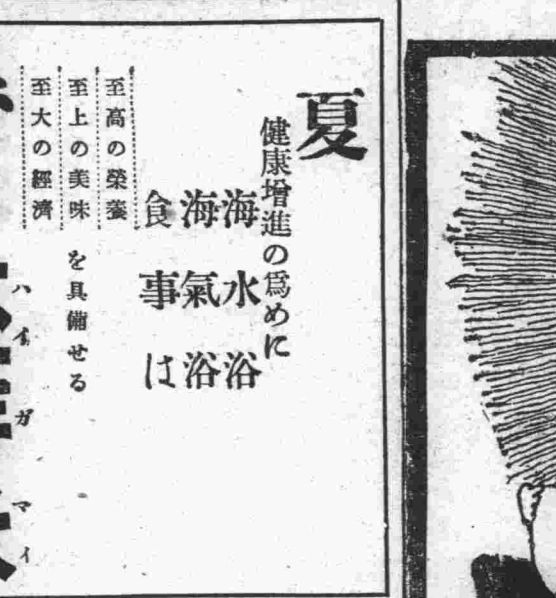 夏
健康增進の爲めに
海水浴
海氣浴
食事は
至高の榮養
至上の美味
至大の經濟
を具備せる
ハイガマイ